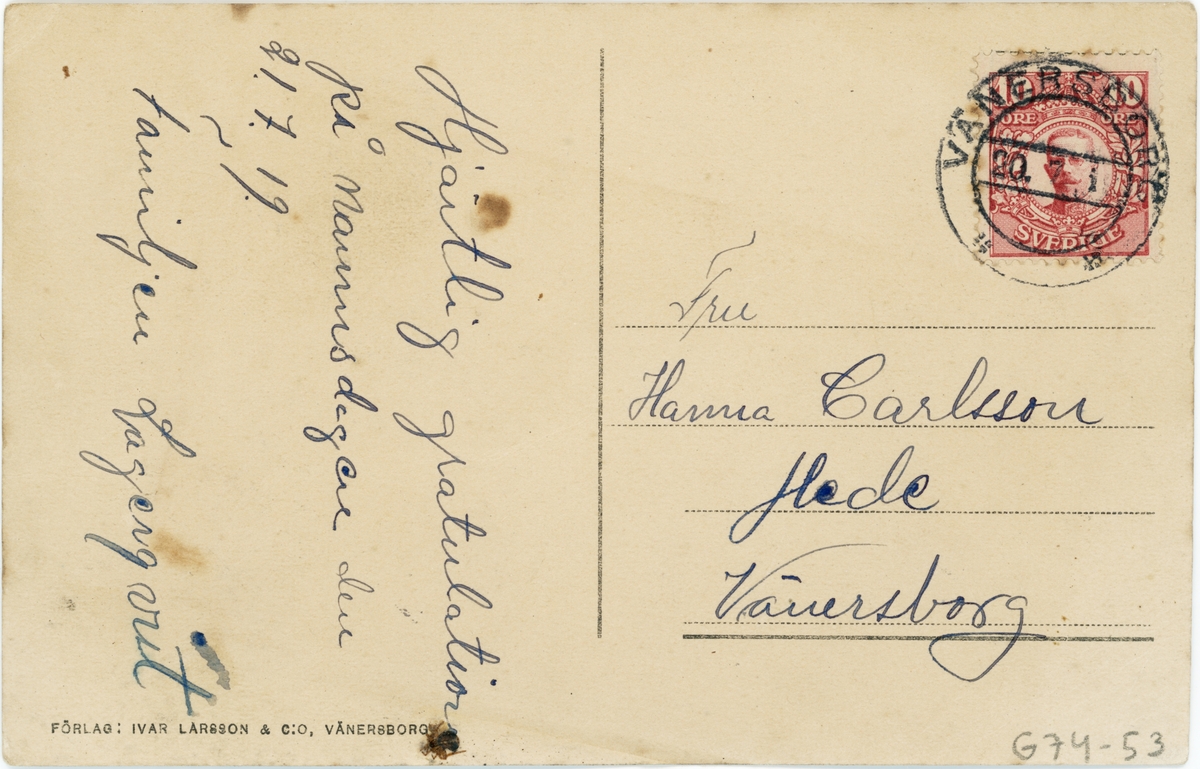 Hjärtlig gratulation
på Namnsdagen den
21. 7. 19.
familjen Lagerqvist
FÖRLAG: IVAR LARSSON & C:O, VÄNERSBORG
10 10
ÖRE ÖRE
SVERIGE
VÄNERSBORG
20. 7. 1
Fru
Hanna Carlsson
Hede
Vänersborg
G74-53